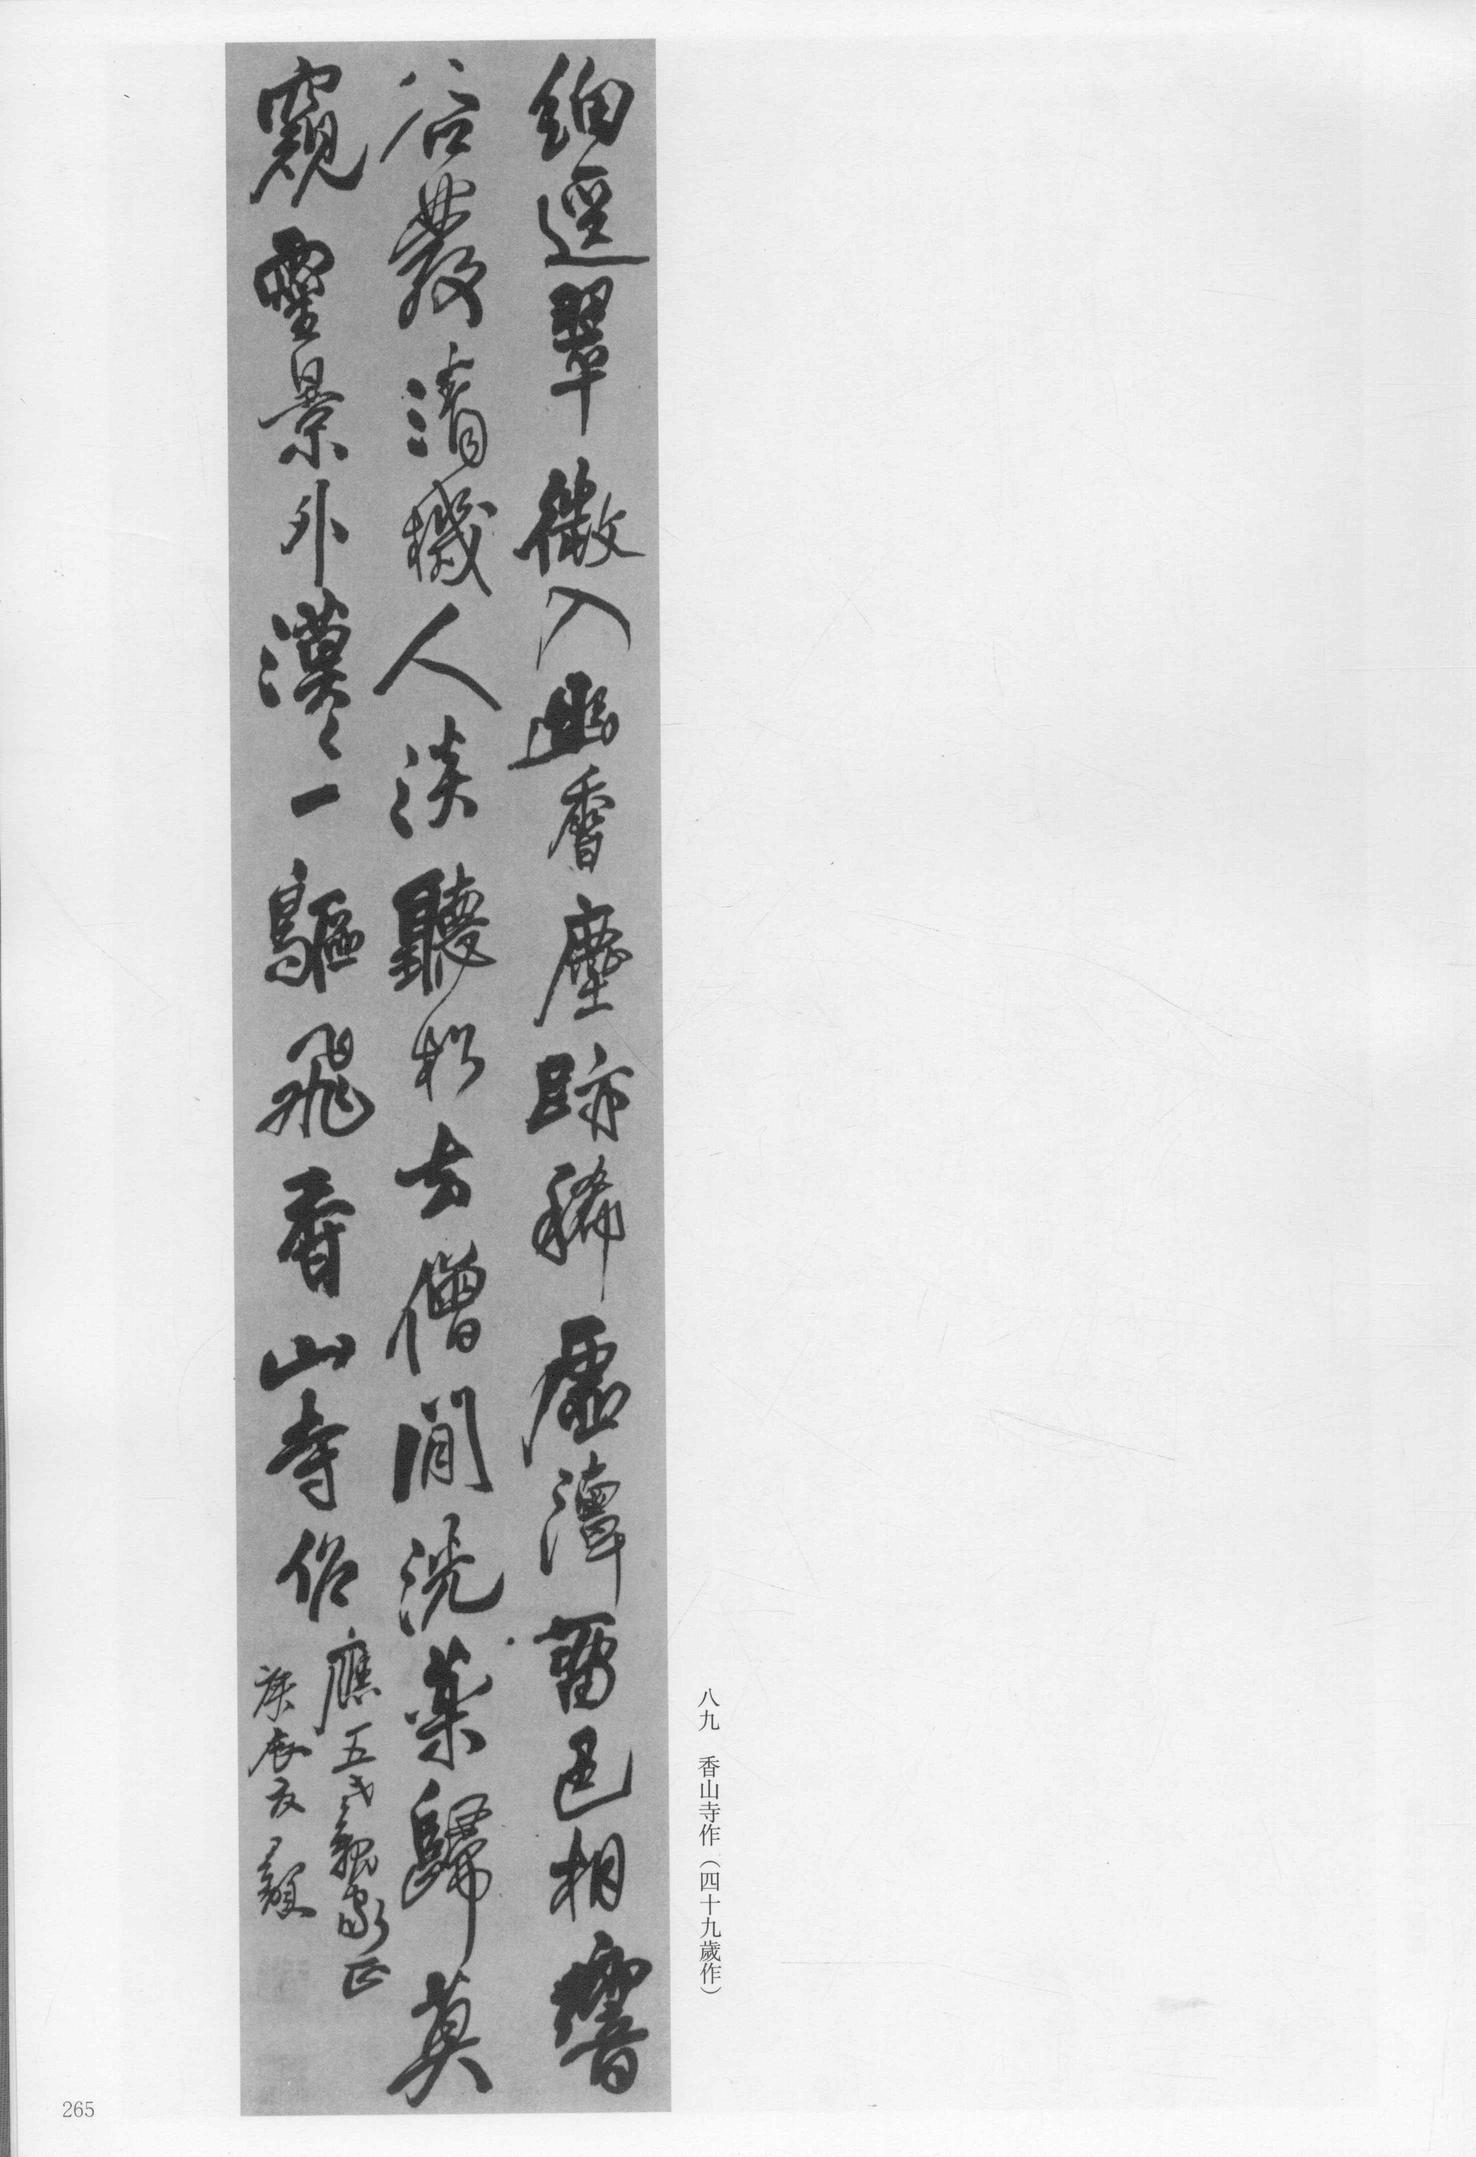 八九　香山寺作（四十九歲作）
紺逕翠微入幽香塵跡稀虛潭蓄色相響
谷發清機人淡聽松去僧閒洗藥歸莫
窺靈景外漠〻一鷗飛香山寺作
應五親家正
庚辰王鐸
265